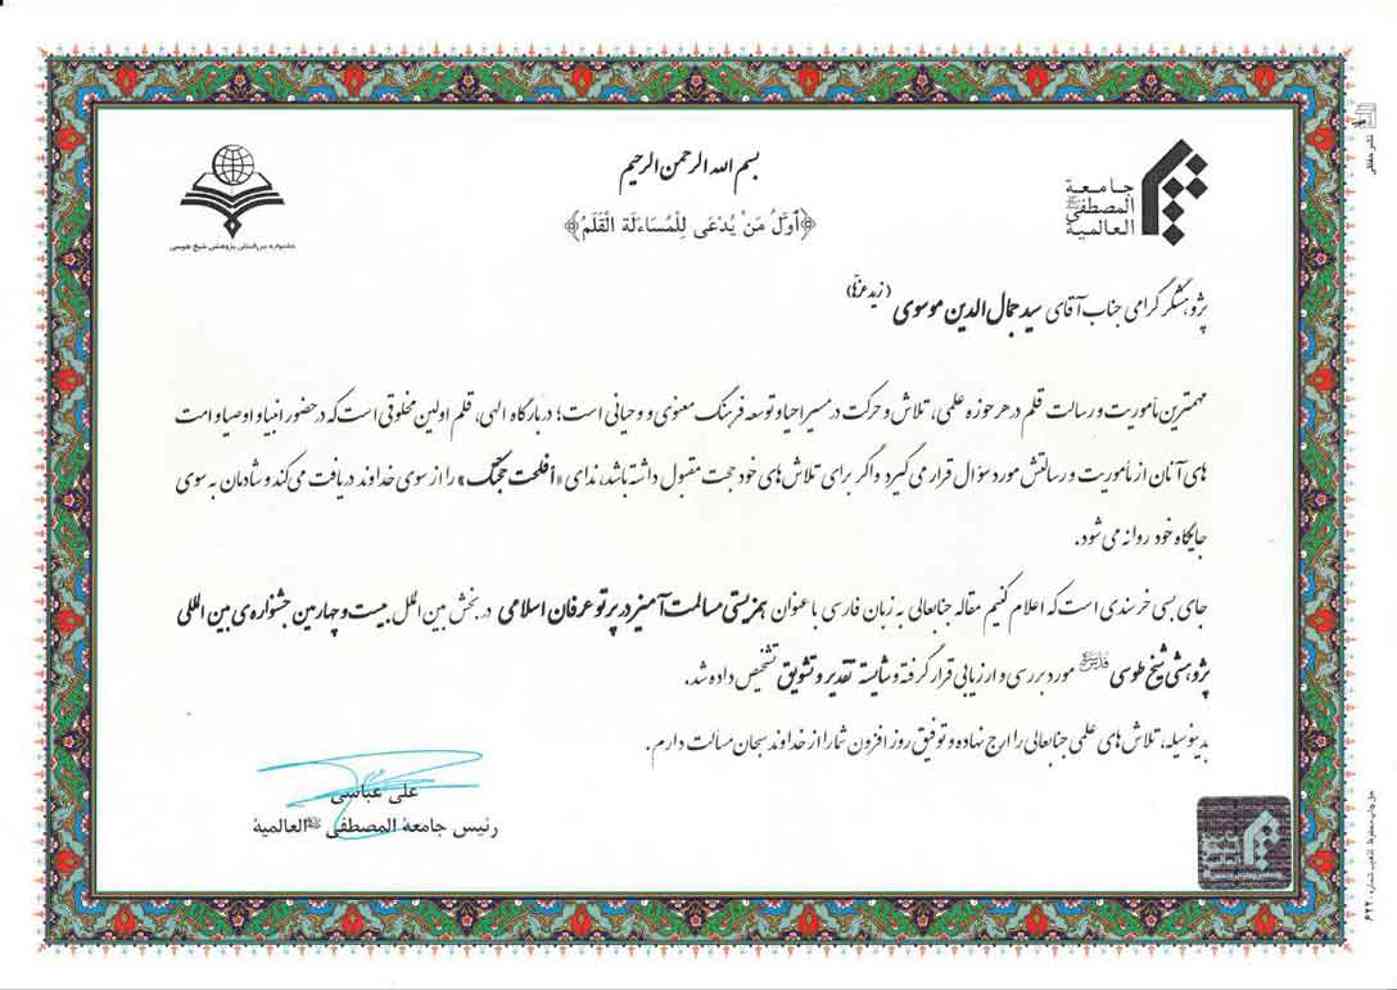 بسم الله الرحمن الرحیم
﴿أَوَّلُ مَنْ يُدْعَى لِلْمُسَاءَلَة الْقَلَمُ﴾
جامعة
المصطفی
العالمیة
جشنواره بین‌المللی پژوهشی شیخ طوسی
پژوهشگر گرامی جناب آقای سید جمال الدین موسوی (زید عزه)
مهمترین مأموریت و رسالت قلم در هر حوزه علمی، تلاش و حرکت در مسیر احیا و توسعه فرهنگ معنوی و وحیانی است؛ در بارگاه الهی، قلم اولین مخلوقی است که در حضور انبیا و اوصیا و امت
های آنان از مأموریت و رسالتش مورد سؤال قرار می گیرد و اگر برای تلاش های خود حجت مقبول داشته باشد، ندای «أفلحت حجتک» را از سوی خداوند دریافت می کند و شادمان به سوی
جایگاه خود روانه می شود.
جای بسی خرسندی است که اعلام کنیم مقاله جنابعالی به زبان فارسی با عنوان همزیستی مسالمت آمیز در پرتو عرفان اسلامی در بخش بین الملل بیست و چهارمین جشنواره ی بین المللی
پژوهشی شیخ طوسی مورد بررسی و ارزیابی قرار گرفته و شایسته تقدیر و تشویق تشخیص داده شد.
بدینوسیله، تلاش های علمی جنابعالی را ارج نهاده و توفیق روز افزون شما را از خداوند سبحان مسألت دارم.
علی عباسی
رئیس جامعة المصطفی العالمیة